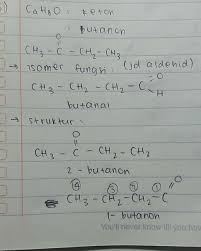 C4H8O : keton
: butanon
O
CH3 – C – CH2 – CH3
→ isomer fungsi : (jd aldehid)
CH3 – CH2 – CH2 – C
O
H
butanal
→ struktur :
O
CH3 – C – CH2 – CH2
2 – butanon
④ ③ ② ① O
CH3 – CH2 – CH2 – C
1 – butanon
You'll never know till you hav